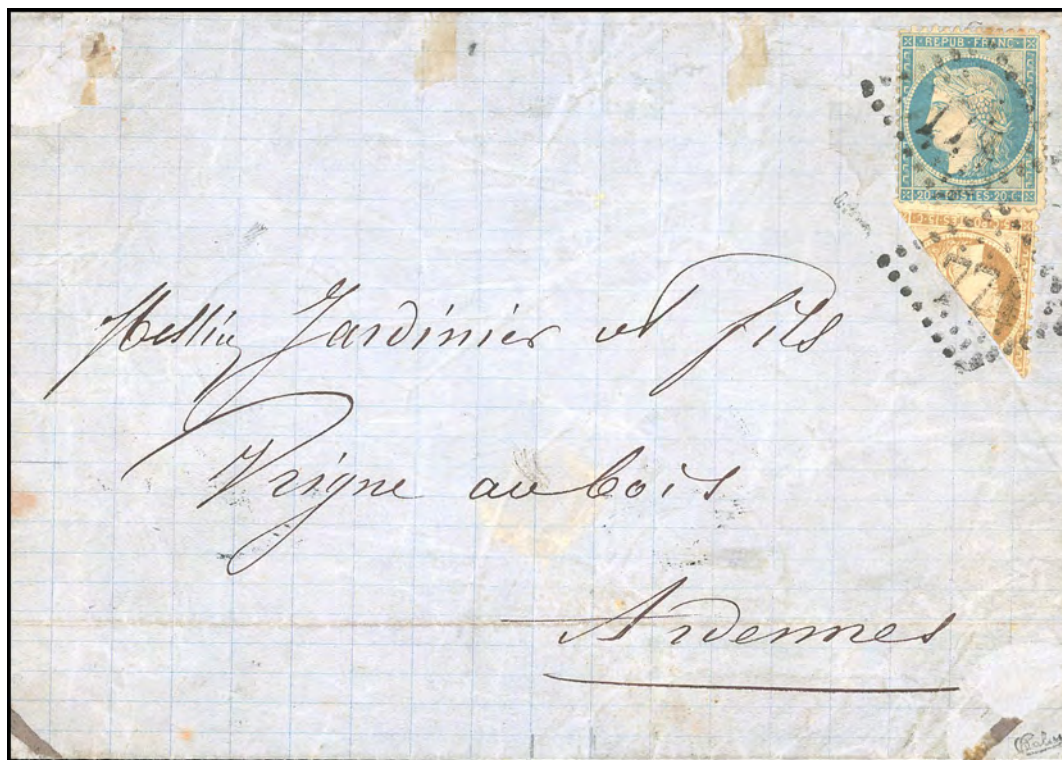 REPUB · FRANC
20 C POSTES 20 C
Messieurs Jardinier et fils
Vrigne au bois
Ardennes